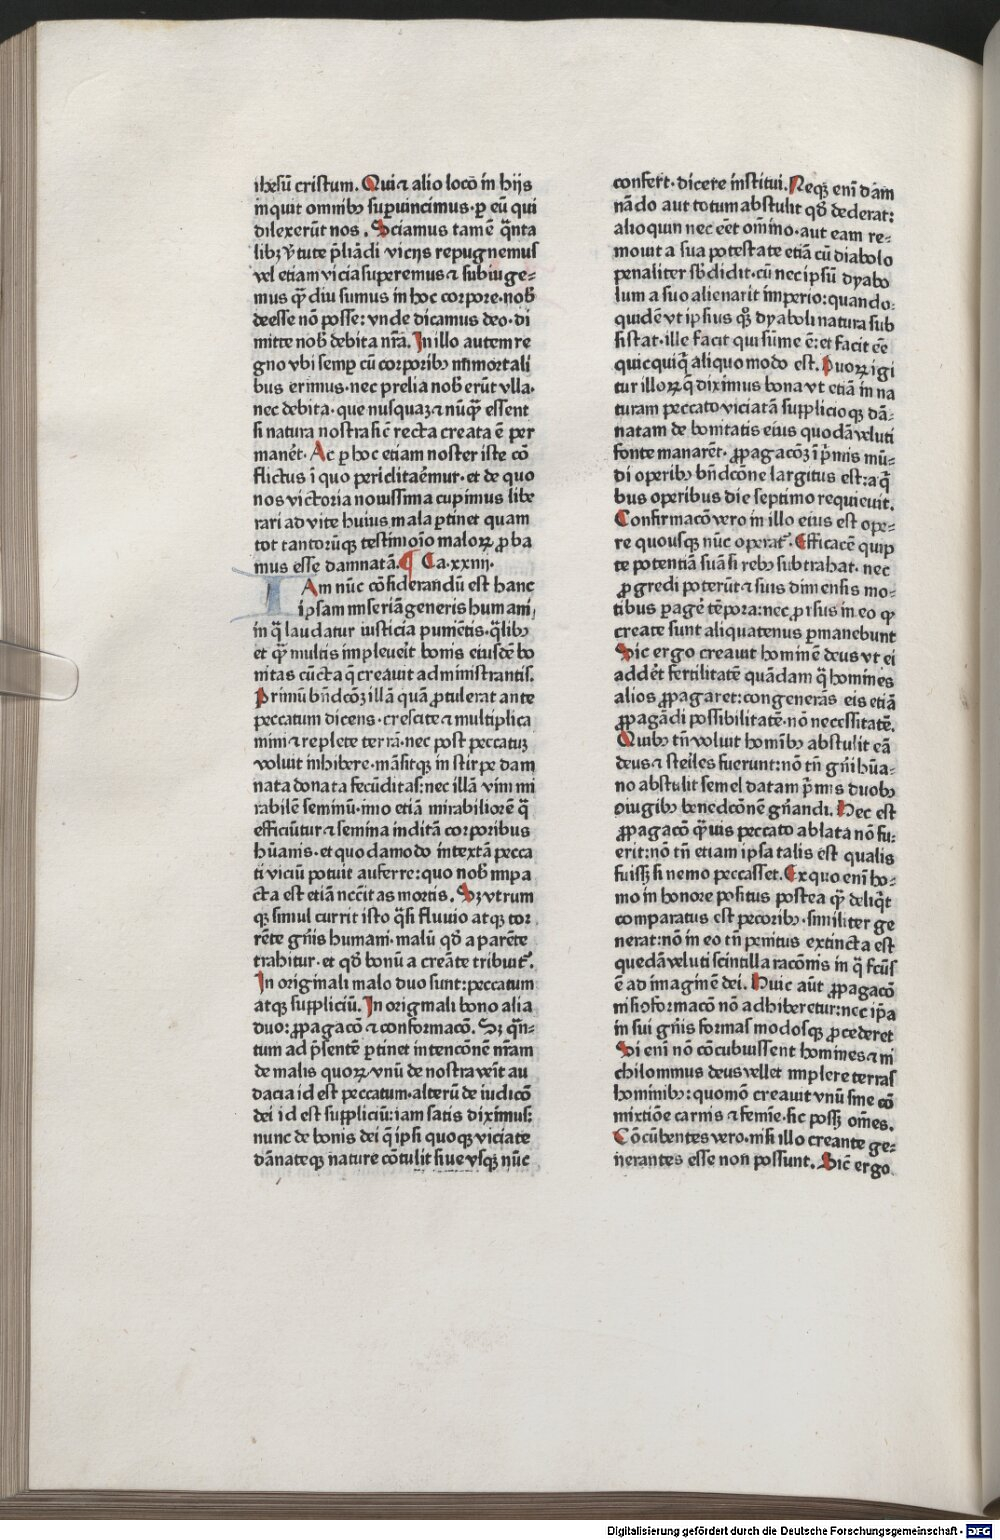 ihesū cristum. Qui ⁊ alio loco in hijs
inquit omnibꝰ supuincimus · ꝑ eū qui
dilexerūt nos. Sciamus tamē q̄nta
libꝫ v̓tute p̄liādi vicijs repugnemus
vel etiam vicia superemus ⁊ subiuge-
mus qᷓ diu sumus in hoc corpore · nob̄
deesse nō posse: vnde dicamus deo · di
mitte nob̄ debita nr̄a. In illo autem re
gno vbi semꝑ cū corporibꝰ inmortali
bus erimus · nec prelia nob̄ erūt vlla ·
nec debita · que nusquaꝫ ⁊ nūqᷓ essent
si natura nostra sic̄ recta creata ē per
manēt. Ac ꝑ hoc etiam noster iste cō
flictus ī quo periclitaēmur · et de quo
nos victoria nouissima cupimus libe
rari ad vite huius mala ꝑtinet quam
tot tantorūqꝫ testimoīo maloꝝ ꝓba
mus esse damnatā. ¶ Ca. xxiiij.
IAm nūc cōsiderandū est hanc
ipsam miseriā generis humani,
in q̄ laudatur iusticia pumētis · q̄libꝰ
et qᷓ multis impleuēit bonis eiusdē bo
nitas cūcta q̄ creauit administrantis.
Primū bn̄dcōꝫ illā quā ꝓtulerat ante
peccatum dicens · crescite ⁊ multiplica
mini ⁊ replete terrā · nec post peccatuꝫ
voluit inhibere · māsitqꝫ in stirpe dam
nata donata fecūditas: nec illā vim mi
rabilē seminū · imo etiā mirabiliorē q̄
efficiūtur ⁊ semina inditā corporibus
hūanis · et quodamodo intextā pecca
ti viciū potuit auferre: quo nob̄ impa
cta est etiā nccītas mortis. Sꝫ vtrum
qꝫ simul currit isto q̄si fluuio atqꝫ tor
rēte gn̄is humani · malū qd̄ a parēte
trahitur · et qd̄ bonū a creāte tribuit᷑.
In originali malo duo sunt: peccatum
atqꝫ suppliciū. In originali bono alia
duo: ꝓpagacō ⁊ conformacō. Sꝫ qᷓn-
tum ad p̄sentē ꝑtinet intencōnē nr̄am
de malis quoꝝ vnū de nostra veīt au
dacia id est peccatum · alterū de iudicō
dei id est suppliciū: iam satis diximus:
nunc de bonis dei q̄ ipsi quoqꝫ viciate
dānateqꝫ nature cōtulit siue vsqꝫ nūc
confert · dicere institui. Neqꝫ enī dām
nādo aut totum abstulit qd̄ dederat:
alioquin nec eēt om̄ino · aut eam re-
mouit a sua potestate etiā cū diabolo
penaliter sb̄didit · cū nec ipsū dyabo
lum a suo alienarit imperio: quando-
quidē vt ipsius qꝫ dyaboli natura sub
sistat · ille facit qui sūme ē: et facit eē
quicquiq̄ aliquomodo est. Duoꝝ igi
tur illoꝝ q̄ diximus bona vt etiā in na
turam peccato viciatā supplicioqꝫ dā-
natam de bonitatis eius quodā veluti
fonte manarēt · ꝓpagacōꝫ ī p̄mis mū-
di operibꝰ bn̄dcōne largitus est: a q̄
bus operibus die septimo requieuit.
Confirmacō vero in illo eius est ope-
re quousqꝫ nūc operat᷑. Efficacē quip
te potentiā suā si rebꝰ subtrahat · nec
ꝓgredi poterūt ⁊ suis dimensis mo-
tibus ꝑagē tēpora: nec ꝓrsus in eo qꝫ
create sunt aliquatenus ꝑmanebunt
Sic ergo creauit hominē deus vt ei
addēt fertilitatē quādam q̄ homines
alios ꝓpagaret: congenerās eis etiā
ꝓpagādi possibilitatē · nō necessitatē.
Quibꝰ tn̄ voluit homībꝰ abstulit eā
deus ⁊ steīles fuerunt: nō tn̄ gn̄i hūa-
no abstulit semel datam p̄mis duobꝰ
ꝯiugibꝰ benedcōnē gn̄andi. Hec est
ꝓpagacō qᷓuis peccato ablata nō fu-
erit: nō tn̄ etiam ipsa talis est qualis
fuissꝫ si nemo peccasset. Ex quo enī ho-
mo in honore positus postea qᷓ deliq̄t
comparatus est pecoribꝰ · similiter ge
nerat: nō in eo tn̄ penitus extincta est
quedā veluti scintilla racōnis in q̄ fcūs
ē ad imaginē dei. Huic aūt ꝓpagacō
ni si ꝯformacō nō adhiberetur: nec ip̄a
in sui gn̄is formas modosqꝫ ꝓcederet
Si enī nō cōcubuissent homines ⁊ ni
chilominus deus vellet implere terras
hominibꝰ: quomō creauit vnū sine cō
mixtiōe carnis ⁊ femīe · sic possꝫ om̄es.
Cōcūbentes vero · nisi illo creante ge-
nerantes esse non possunt. Sic̄ ergo
Digitalisierung gefördert durch die Deutsche Forschungsgemeinschaft - DFG